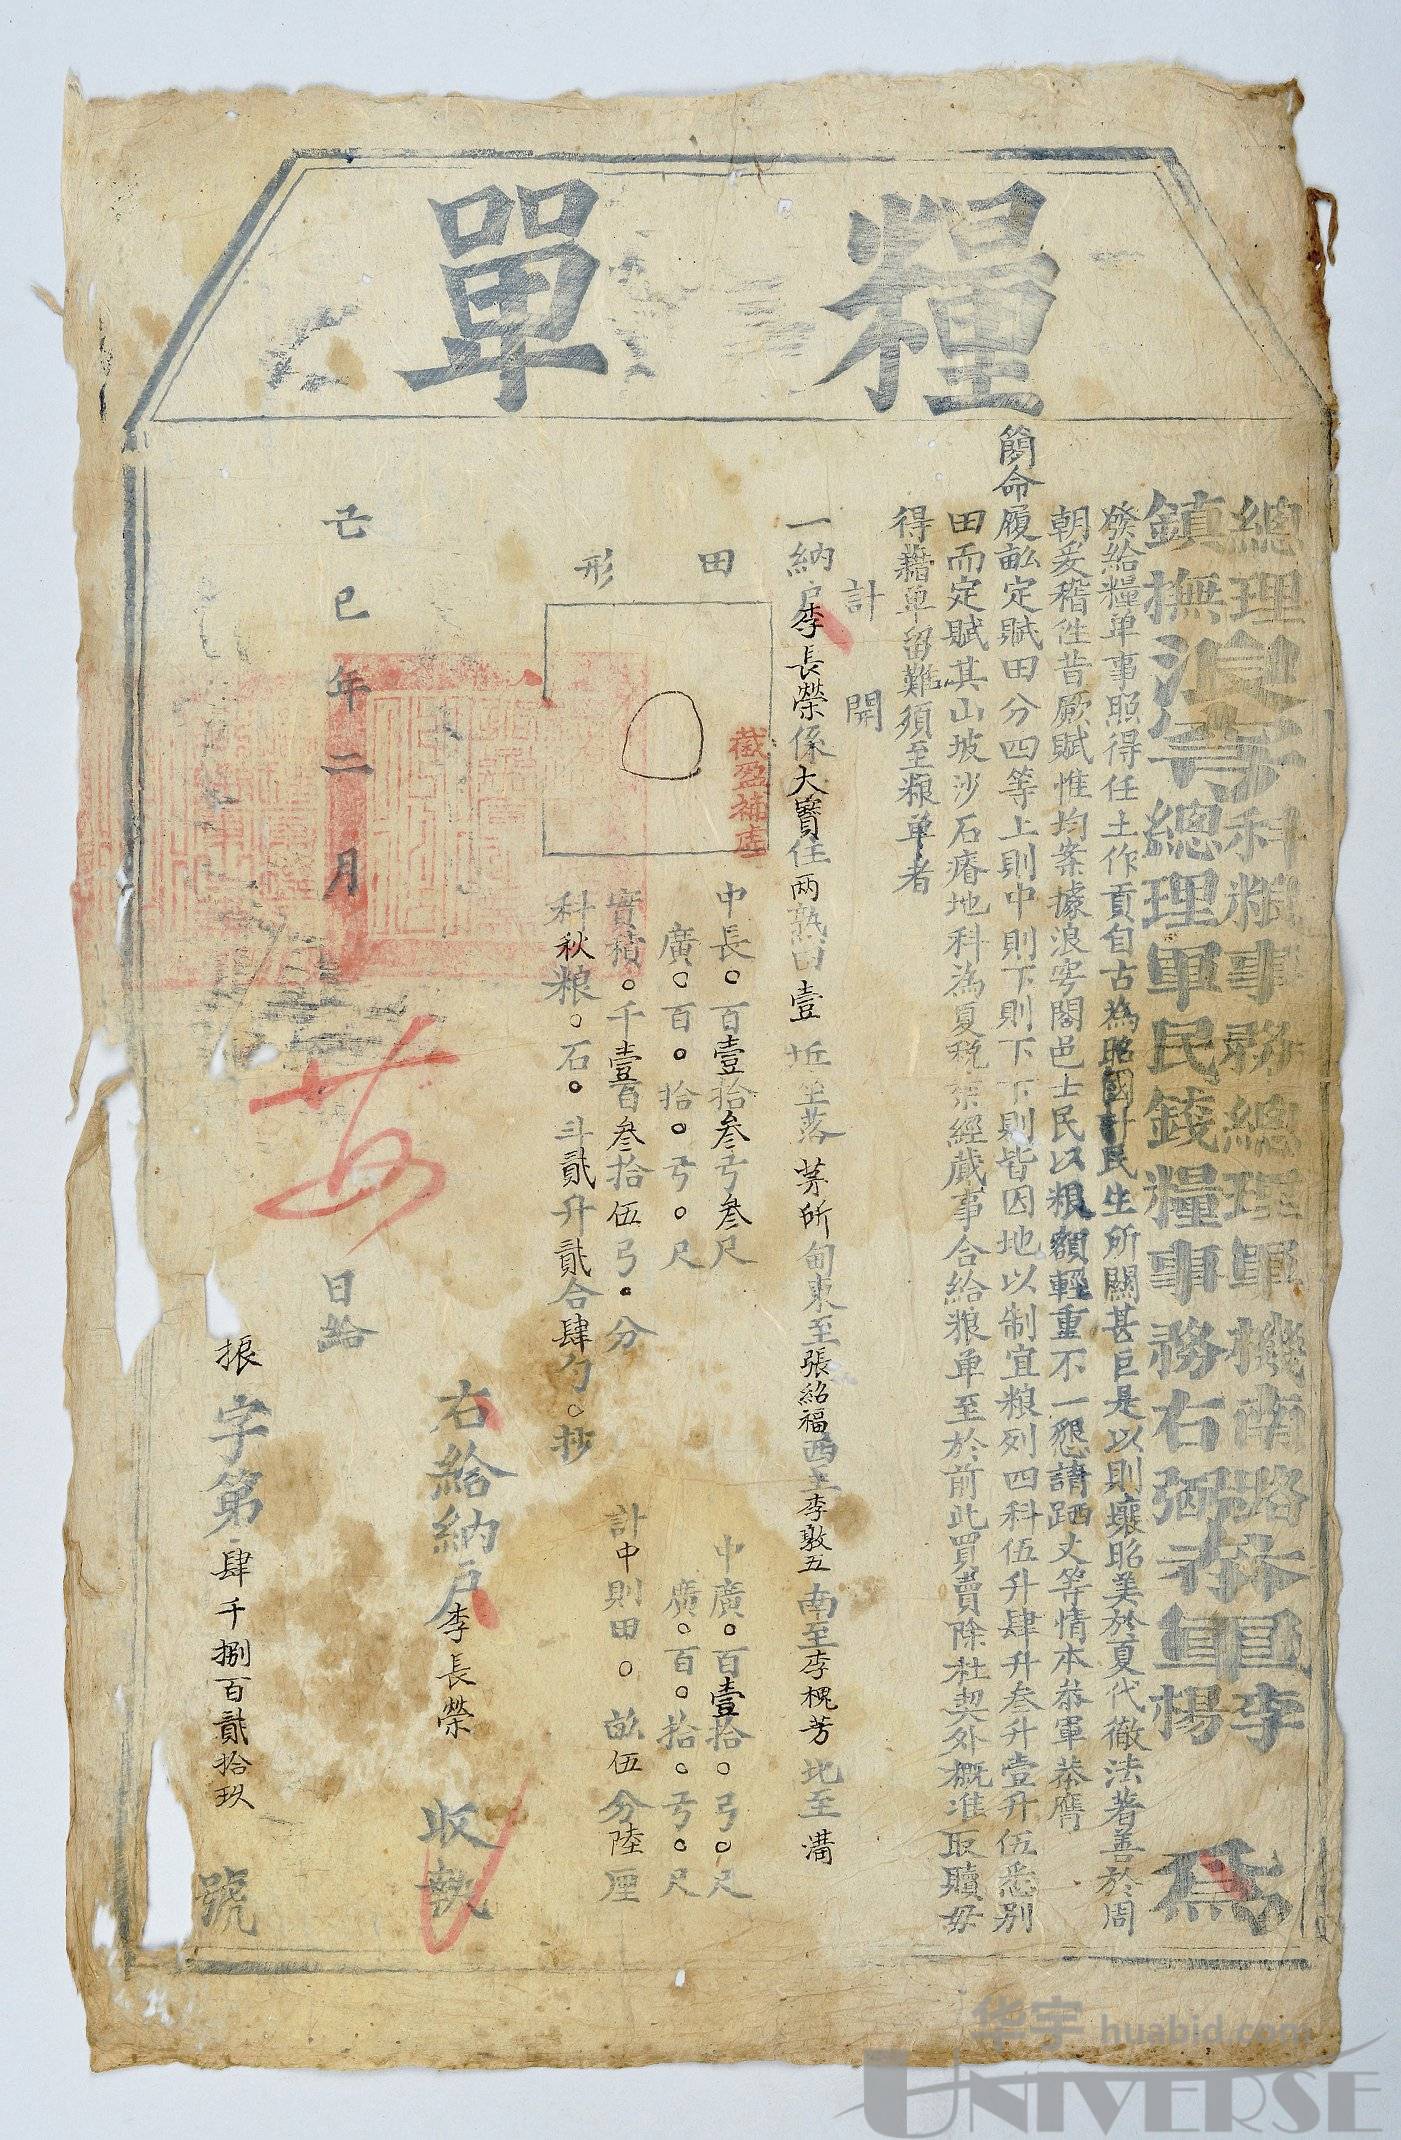 糧單
總理浪穹科糧事務總理軍機南路叅軍李
鎮撫浪穹總理軍民錢糧事務右弼叅軍楊 為
發給糧单事照得任土作貢自古為昭國計民生所關甚巨是以則壤昭美於夏代徹法著善於周
朝爰稽徃昔厥賦惟均案據浪穹閤邑士民以粮額輕重不一懇請踏丈等情本叅軍恭膺
簡命履畝定賦田分四等上則中則下則下下則皆因地以制宜粮列四科伍升肆升叁升壹升伍悉别
田而定賦其山坡沙石瘠地科為夏税業經蕆事合給粮单至於前此買賣除杜契外概准取贖毋
得藉单留難須至粮单者
計開
一納户李長榮係大寶任兩熟田壹坵坐落茅所甸東至張紹福西至李敦五南至李槐芳北至溝
田形
截盈補虛
中長○百壹拾叁弓叁尺 中廣○百壹拾○弓○尺
廣○百○拾○弓○尺 廣○百○拾○弓○尺
實積○千壹百叁拾伍弓○分 計中則田○畝伍分陸厘
科秋粮○石○斗貳升貳合肆勺○抄
右給納户李長榮 收執
己巳年二月 日給
振字第肆千捌百貳拾玖號
华宇 huabid.com
UNIVERSE